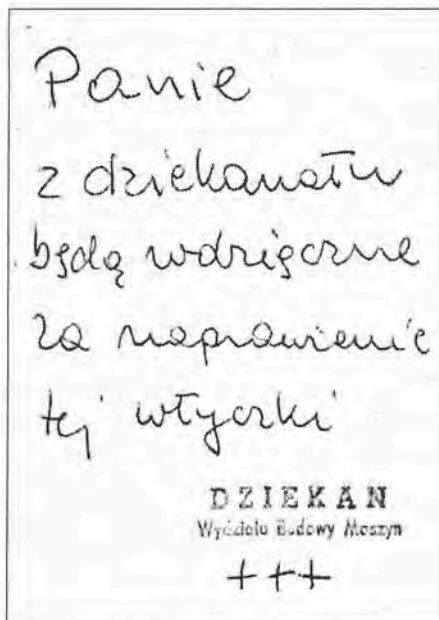 Panie
z dziekanatu
będą wdzięczne
za naprawienie
tej wtyczki
DZIEKAN
Wydziału Budowy Maszyn
+++